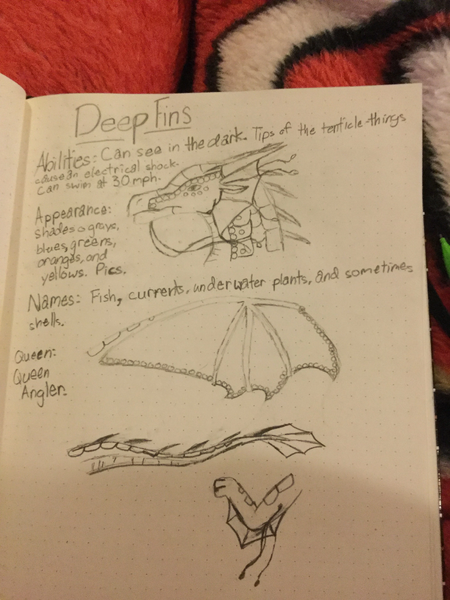 Deep Fins
Abilities: Can see in the dark. Tips of the tenticle-things
cause an electrical shock.
Can swim at 30 mph.
Appearance:
shades o grays,
blues, greens,
oranges, and
yellows. Pics.
Names: Fish, currents, underwater plants, and sometimes
shells.
Queen:
Queen
Angler.